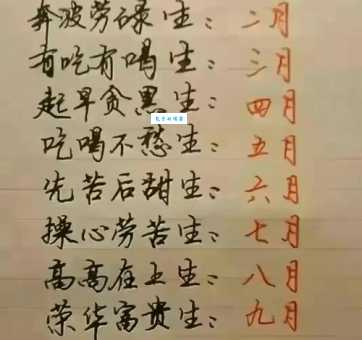 奔波劳碌生：二月
有吃有喝生：三月
起早贪黑生：四月
吃喝不愁生：五月
先苦后甜生：六月
操心劳苦生：七月
高高在上生：八月
荣华富贵生：九月